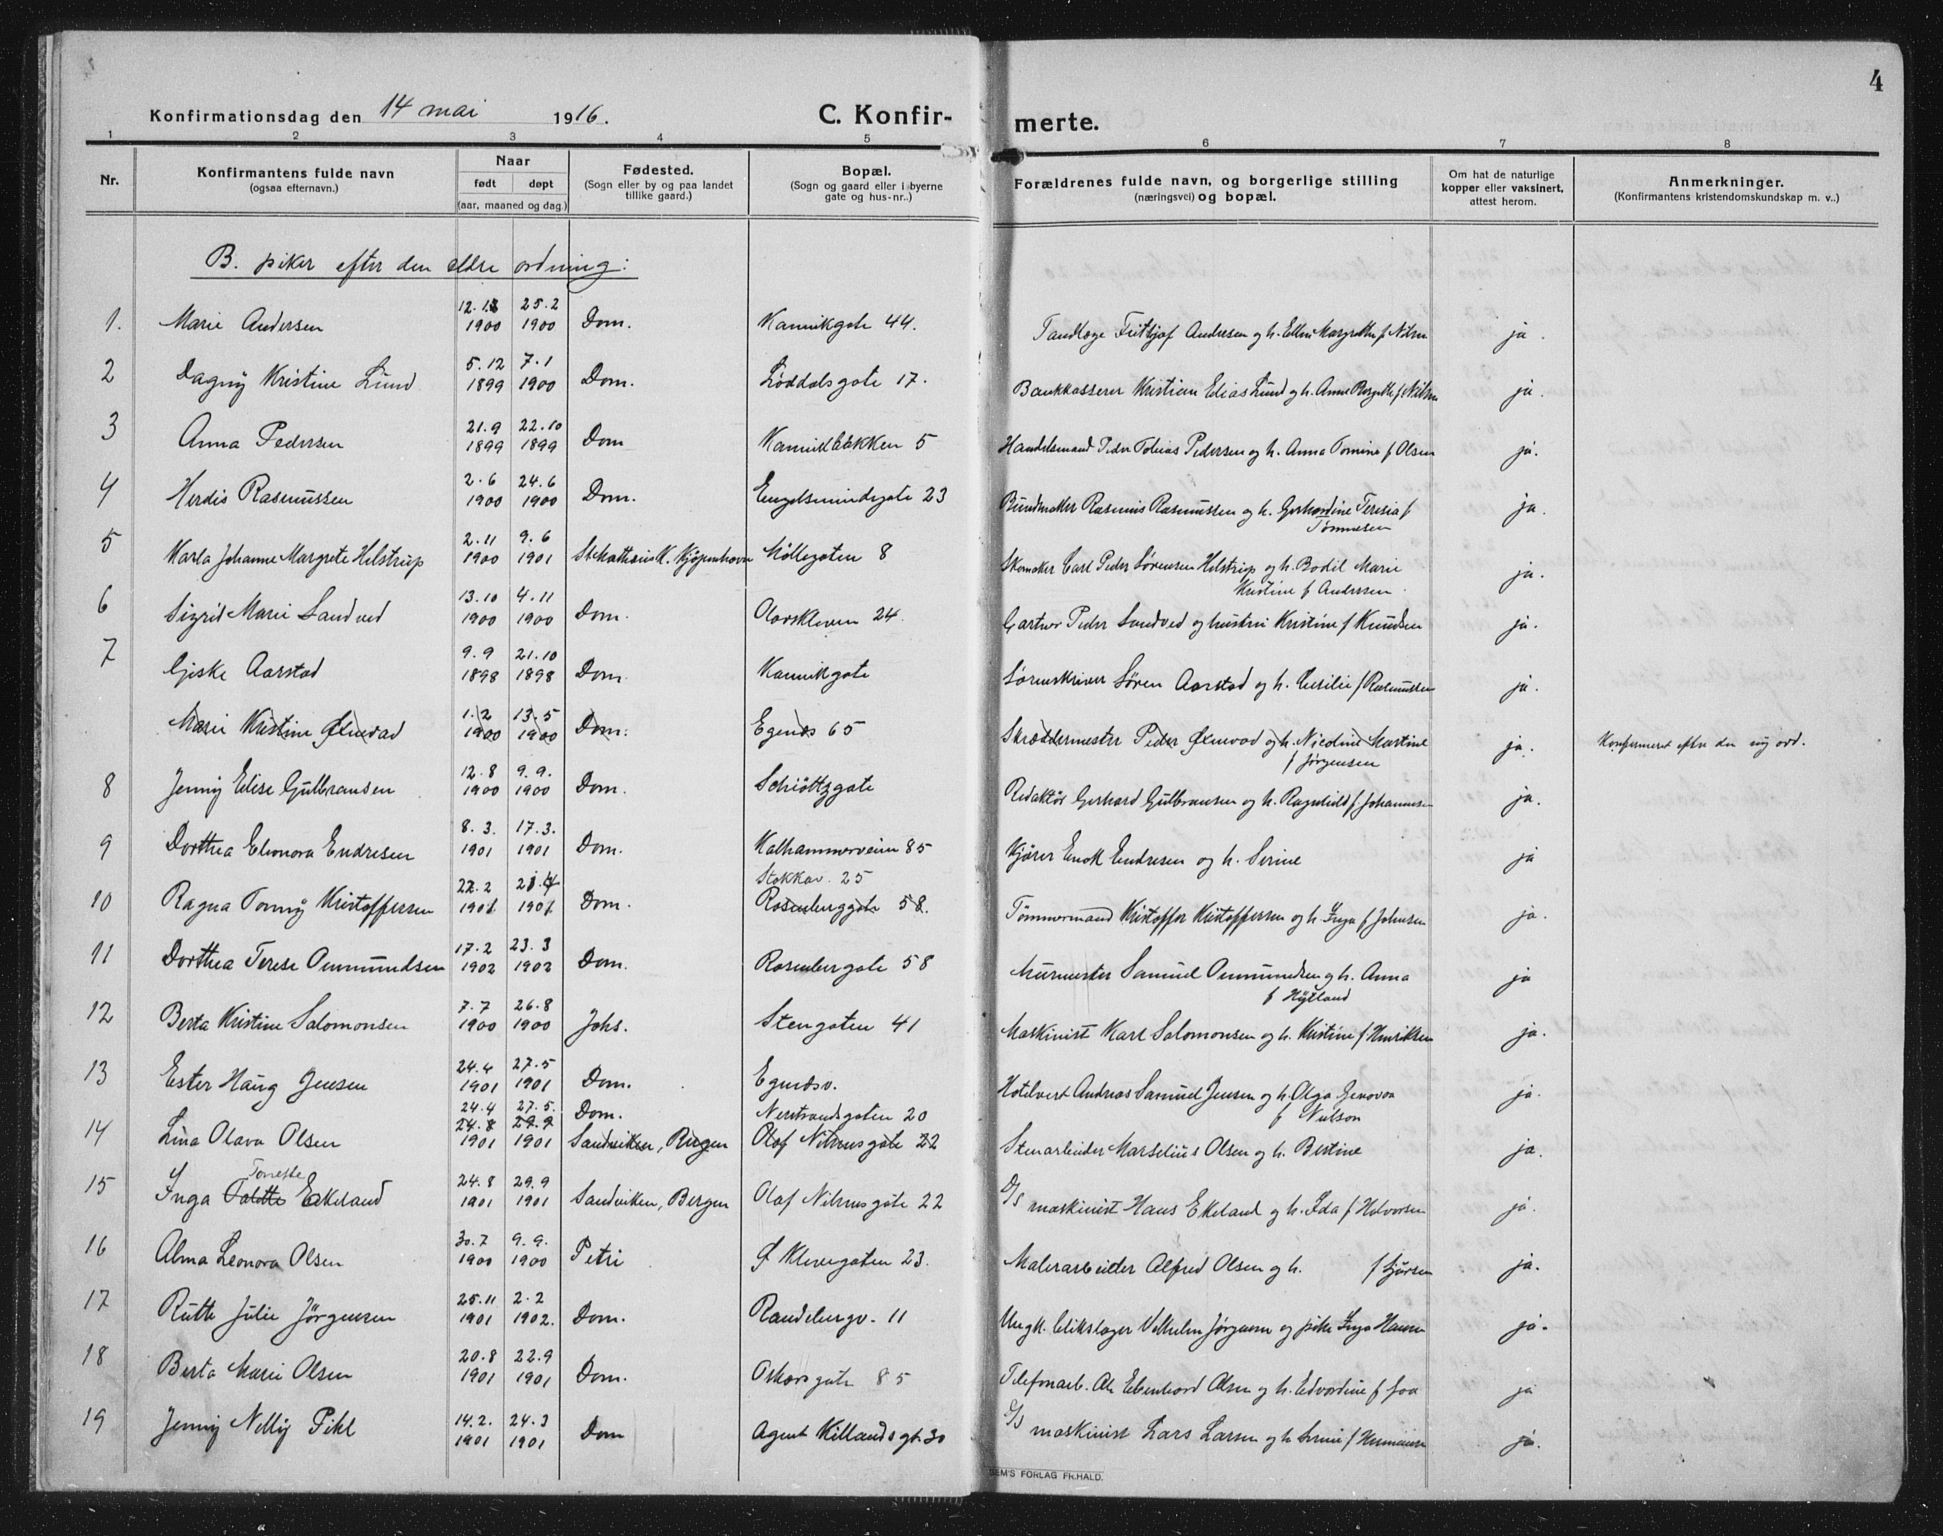 4
Konfirmationsdag den 14 mai 1916.
C. Konfirmerte.
1 2 3 4 5 6 7 8
Nr.
Konfirmantens fulde navn
(ogsaa efternavn.)
Naar
født døpt
(aar, maaned og dag.)
Fødested.
(Sogn eller by og paa landet
tillike gaard.)
Bopæl.
(Sogn og gaard eller i byerne
gate og hus-nr..)
Forældrenes fulde navn, og borgerlige stilling
(næringsvei) og bopæl.
Om hat de naturlige
kopper eller vaksinert,
attest herom.
Anmerkninger.
(Konfirmantens kristendomskundskap m. v..)
B. piker efter den eldre ordning:
1. Marie Andersen 12.1 1900 25.2 1900 Dom. Kannikgate 44. Tandlæge Frithjof Andersen og h. Ellen Margrethe f Nilsen ja.
2 Dagny Kristine Lund 5.12 1899 7.1 1900 Dom. Løddelsgate 17. Bankkasserer Kristian Elias Lund og h. Anne Bergitte f. Nilsen ja.
3 Anna Pedersen 21.9 1899 22.10 1899 Dom Kannikbakken 5 Handelsmand Peder Tobias Pedersen og h. Anna Tomine f Olsen ja.
4 Herdis Rasmussen 2.6 1900 24.6 1900 Dom. Engelsmindegate 23 Bundtmaker Rasmus Rasmussen og h. Gerhardine Teresia f
Tønnesen ja.
5 Karla Johanne Margrete Helstrup 2.11 1900 9.6 1901 St. Mathæus K. Kjøpenhavn Møllegaten 8 Skomaker Carl Peder Sørensen Helstrup og h. Bodil Marie
Kristine f Andersen. ja.
6 Sigrid Marie Sandved 13.10 1900 4.11 1900 Dom. Olavskleven 24. Gartner Peder Sandved og hustru Kristine f Knudsen ja.
7 Gjske Aarstad 9.9 1898 21.10 1898 Dom. Kannikgate Sorenskriver Søren Aarstad og h. Cecilie f Rasmussen ja.
Marie Kristine Ølnevad 1.2 1900 13.5 1900 Dom. Egenæs 65 Skræddermester Peder Ølnevad og h. Nicoline Martine
f Jørgensen ja. Konfirmeret efter den ny ord.
8 Jenny Elise Gulbransen 12.8 1900 9.9. 1900 Dom. Schiøttzgate Redaktør Gerhard Gulbransen og h. Ragnhild f Johannesen ja.
9 Dorthea Elenora Endresen 8.3. 1901 17.3. 1901 Dom. Kalhammerveien 85 Kjører Enok Endresen og h. Serine ja
Stokkav. 25
10 Ragna Tomy Kristoffersen 22.2 1901 21.4 1901 Dom. Rosenberggate 58. Tømmermand Kristoffer Kristoffersen og h. Inga f Johnsen ja.
11 Dorthea Terese Ommundsen 17.2 1902 23.3 1902 Dom. Rosenbergate 58 Murmester Samuel Ommundsen og h. Anna
f Hylland ja
12 Berta Kristine Salomonsen 7.7 1900 26.8 1900 Johs. Stengaten 41 Maskinist Karl Salomonsen og h. Kristine f. Henriksen ja.
13 Ester Haug Jensen 24.4 1901 27.5 1901 Dom. Egenæsv. Hotelvert Andreas Samuel Jensen og h. Olga Genovva
f Nielson ja.
24.4 27.5. Dom. Nerstrandsgaten 20
14 Lina Olava Olsen 24.8 1901 29.9 1901 Sandviken, Bergen Olaf Nilsensgate 22 Stenarbeider Marselius Olsen og h. Bertine ja.
Tonette
15 Inga Talette Eikeland 24.8 1901 29.9 1901 Sandviken, Bergen Olaf Nilsensgate 22 D/S maskinist Hans Ekeland og h. Ida f Halvorsen ja.
16 Alma Leonora Olsen 30.7 1900 9.9. 1900 Petri Ø Klevegaten 23. Malerarbeider Alfred Olsen og h. f Gjørsen ja.
17 Ruth Julie Jørgensen 25.11 1901 2.2 1902. Dom. Randebergv. 11 Ungk. blikslager Vilhelm Jørgensen og pike Inga Hansen ja.
18 Berta Marie Olsen 20.8 1901 22.9 1901 Dom. Oskarsgate 85 Telefonarb. Ole Edenhard Olsen og h. Edvardine f Joa ja
19 Jenny Nelly Pihl 14.2. 1901 24.3 1901 Dom Agent Kiellandsgt. 30 D/S maskinist Lars Larsen og h Serine f Hermansen ja.
SEM'S FORLAG FR.HALD.